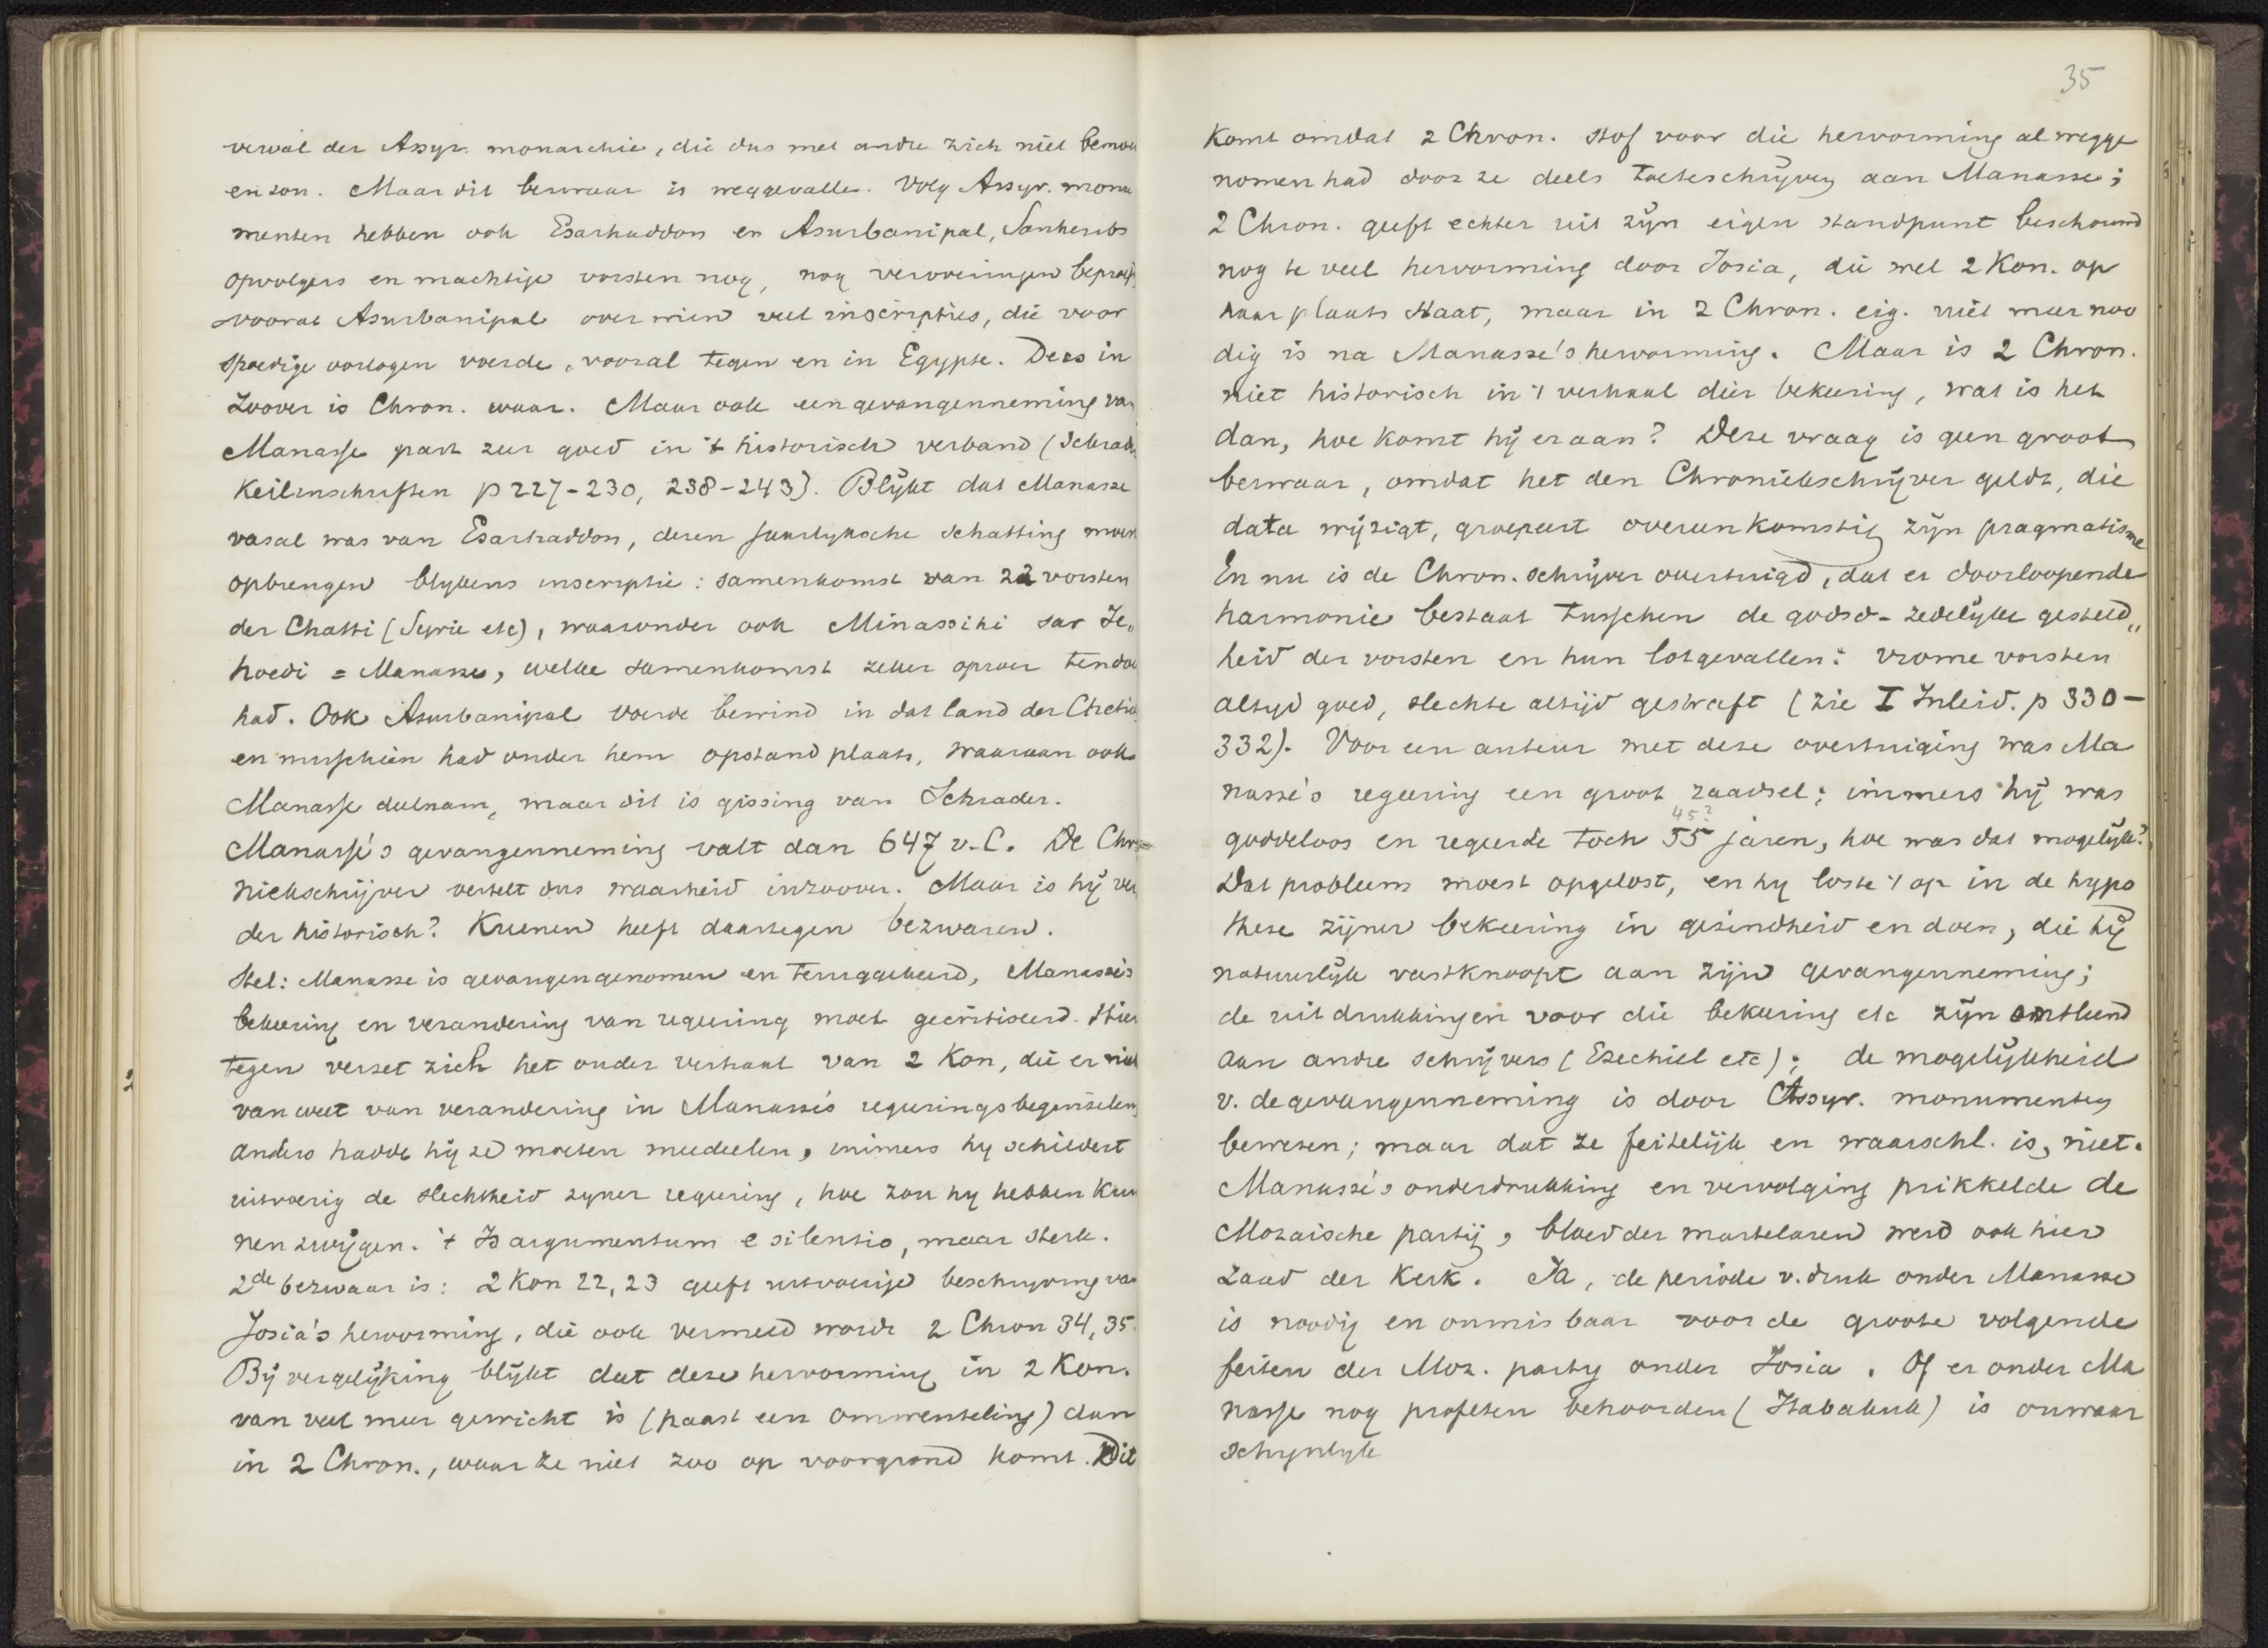 verval der Assyr. monarchie, die dus met andre zich niet bemoei
en zon. Maar dit bezwaar is weggevallen. Volg Assyr. monu
menten hebben ook Esarhaddon en Asurbanipal, Sanheribs
opvolgers en machtige vorsten nog, nog veroveringen beproefd
vooral Asurbanipal over wien veel inscripties, die voor
spoedige oorlogen voerde, vooral tegen en in Egypte. Dees in
zoover is Chron. waar. Maar ook een gevangenneming van
Manasse past zeer goed in 't historisch verband (Schrader
Keilinschriften p 227-230, 238-243). Blijkt dat Manasse
vasal was van Esarhaddon, dezen jaarlijksche schatting moest
opbrengen blijkens inscriptie: samenkomst van 22 vorsten
der Chatti (Syrie etc), waaronder ook Minassihi sar Je„
hoedi = Manasse, welke samenkomst zeker oproer ten doel
had. Ook Asurbanipal voerde bewind in dat land der
en misschien had onder hem opstand plaats, waaraan ook
Manasse deelnam, maar dit is gissing van Schrader.
Manasse's gevangenneming valt dan 647 v. C. De Chro
niekschrijver vertelt ons waarheid inzoover. Maar is hij ver
der historisch? Kuenen heeft daartegen bezwaren.
Stel: Manasse is gevangengenomen en teruggekeerd, Manasse's
bekeering en verandering van regeering moet gecritiseerd. Hier
tegen verzet zich het ouder verhaal van 2 Kon, die er niet
van weet van verandering in Manasse's regeeringsbeginselen
anders hadde hij ze moeten meedeelen, immers hy schildert
uitvoerig de slechtheid zyner regeering, hoe zou hy hebben kun
nen zwijgen. 't Is argumentum e silentio, maar sterk.
2de bezwaar is: 2 Kon 22, 23 geeft uitvoerige beschrijving van
Josia's hervorming, die ook vermeld wordt 2 Chron 34, 35.
Bij vergelijking blijkt dat deze hervorming in 2 Kon.
van veel meer gewicht is (haast een omwenteling) dan
in 2 Chron., waar ze niet zoo op voorgrond komt. Dit
35
komt omdat 2 Chron. stof voor die hervorming al wegge
nomen had door ze deels toeteschrijven aan Manasse;
2 Chron. geeft echter uit zijn eigen standpunt beschouwd
nog te veel hervorming door Josia, die wel 2 Kon. op
haar plaats staat, maar in 2 Chron. eig. niet meer noo
dig is na Manasse's hervorming. Maar is 2 Chron.
niet historisch in 't verhaal dier bekeering, wat is het
dan, hoe komt hij eraan? Deze vraag is geen groot
bezwaar, omdat het den Chroniekschrijver geldt, die
data wijzigt, groepeert overeenkomstig zijn pragmatisme
En nu is de Chron. schrijver overtuigd, dat er doorloopende
harmonie bestaat tusschen de godsd- zedelijke gesteld„
heid der vorsten en hun lotgevallen: vrome vorsten
altyd goed, slechte altijd gestraft (zie I Inleid. p 330-
332). Voor een auteur met deze overtuiging was Ma
nasse's regeering een groot raadsel; immers hij was
45?
goddeloos en regeerde toch 55 jaren, hoe was dat mogelijk?
Dat probleem moest opgelost, en hy loste 't op in de hypo
these zijner bekeering in gezindheid en doen, die hij
natuurlijk vastknoopt aan zijn gevangenneming;
de uitdrukkingen voor die bekeering etc zijn ontleend
aan andre schrijvers (Ezechiel etc); de mogelijkheid
v. de gevangenneming is door Assyr. monumenten
bewezen; maar dat ze feitelijk en waarschl. is, niet.
Manasse's onderdrukking en vervolging prikkelde de
Mozaische partij, bloed der martelaren werd ook hier
zaad der Kerk. Ja, de periode v. druk onder Manasse
is noodig en onmisbaar voor de groote volgende
feiten der Moz. party onder Josia. Of er onder Ma
nasse nog profeten behoorden (Habakuk) is onwaar
schynlyk